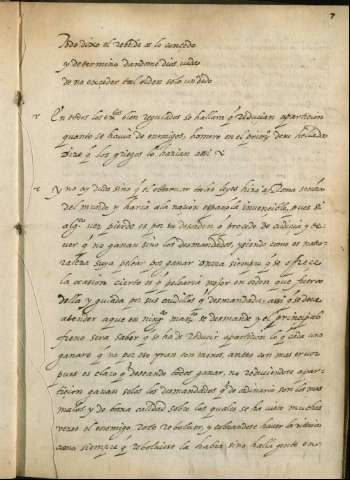 7
Todo dixo el rebelde os lo concedo
y determino dandome dios vida
de no exceder tal orden solo un dedo
En todos los exos bien regulados se hallan q reducian a particion
quanto se havia de enemigos, homero en el primo de su Iliada
dize q los griegos lo hazian assi
Y no ay duda sino q el observar estas leyes hizo a Roma señora
del mundo y haria a la naçion española invencible, pues si
algs vez pierde es por su desorden q procede de cudicia y de
ver q no ganan sino los desmandados, y siendo como es natu
raleza suya pelear por ganar honrra siempre q se ofrece
la ocasion cierto es q pelearia mejor en orden que fuera
della y guiada por sus caudillos q desmandada, assi q se deve
atender a que en nings mana se desmande y el principal
freno sera saber q se ha de reducir a particion lo q cada uno
ganare q no por eso yran con menos, antes con mas
pues es claro q deseando todos ganar, no reduciendose a par
ticion ganan solos los desmandados q de ordinario son los mas
malos y de baxa calidad sobre los quales se ha visto muchas
vezes el enemigo roto rebolver, y estorvandose hacer la vitoria
como siempre q rebolviese la havia sino halla gente en